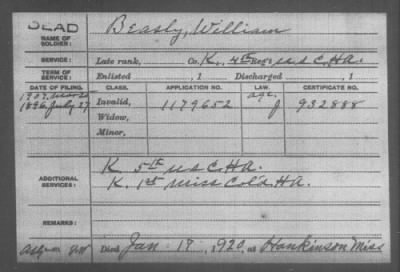 DEAD
NAME OF SOLDIER: Beasly, William
SERVICE: Late rank, Co. K, 4th Reg't U.S.C.H.A.
TERM OF SERVICE: Enlisted , 1 Discharged , 1
DATE OF FILING. CLASS. APPLICATION NO. LAW. CERTIFICATE NO.
age.
1896 July 27 Invalid, 1179652 J 932888
Widow,
Minor,
K. 5th U.S.C.H.A.
ADDITIONAL SERVICES: K. 1st Miss Col'd H.A.
REMARKS:
Died Jan 18, 1920, at Hankinson Miss